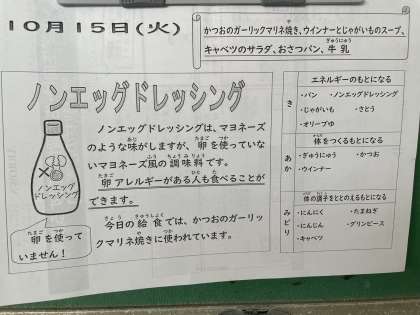 10月15日(火)
かつおのガーリックマリネ焼き、ウインナーとじゃがいものスープ、
キャベツのサラダ、おさつパン、牛乳
ノンエッグドレッシング
ノンエッグドレッシングは、マヨネーズ
のような味がしますが、卵を使っていな
いマヨネーズ風の調味料です。
卵アレルギーがある人も食べることが
できます。
今日の給食では、かつおのガーリッ
クマリネ焼きに使われています。
ノンエッグ
ドレッシング
卵を使って
いません!
エネルギーのもとになる
き
・パン ・ノンエッグドレッシング
・じゃがいも ・さとう
・オリーブゆ
体をつくるもとになる
あか
・ぎゅうにゅう ・かつお
・ウインナー
体の調子をととのえるもとになる
みどり
・にんにく ・たまねぎ
・にんじん ・グリンピース
・キャベツ